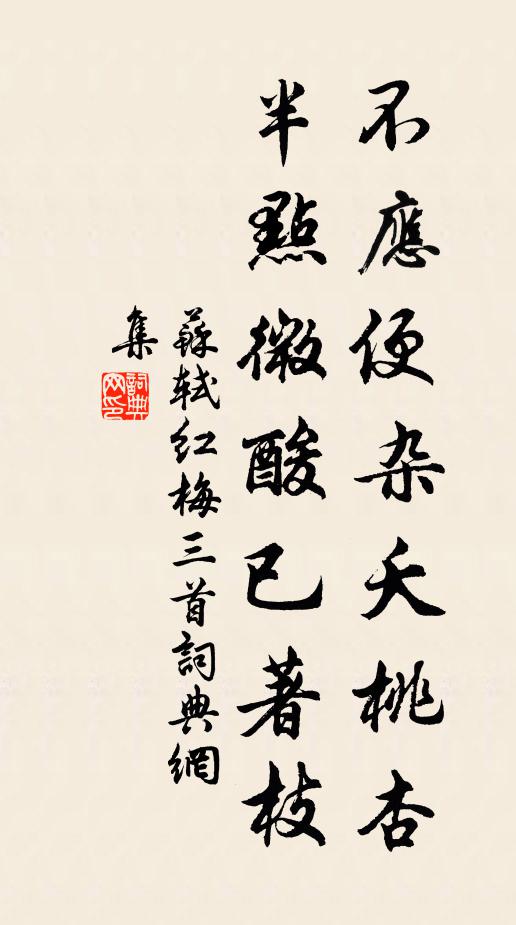 不應便杂夭桃杏
半點微酸已著枝
蘇軾红梅三首詞典網
集
詞典
网印